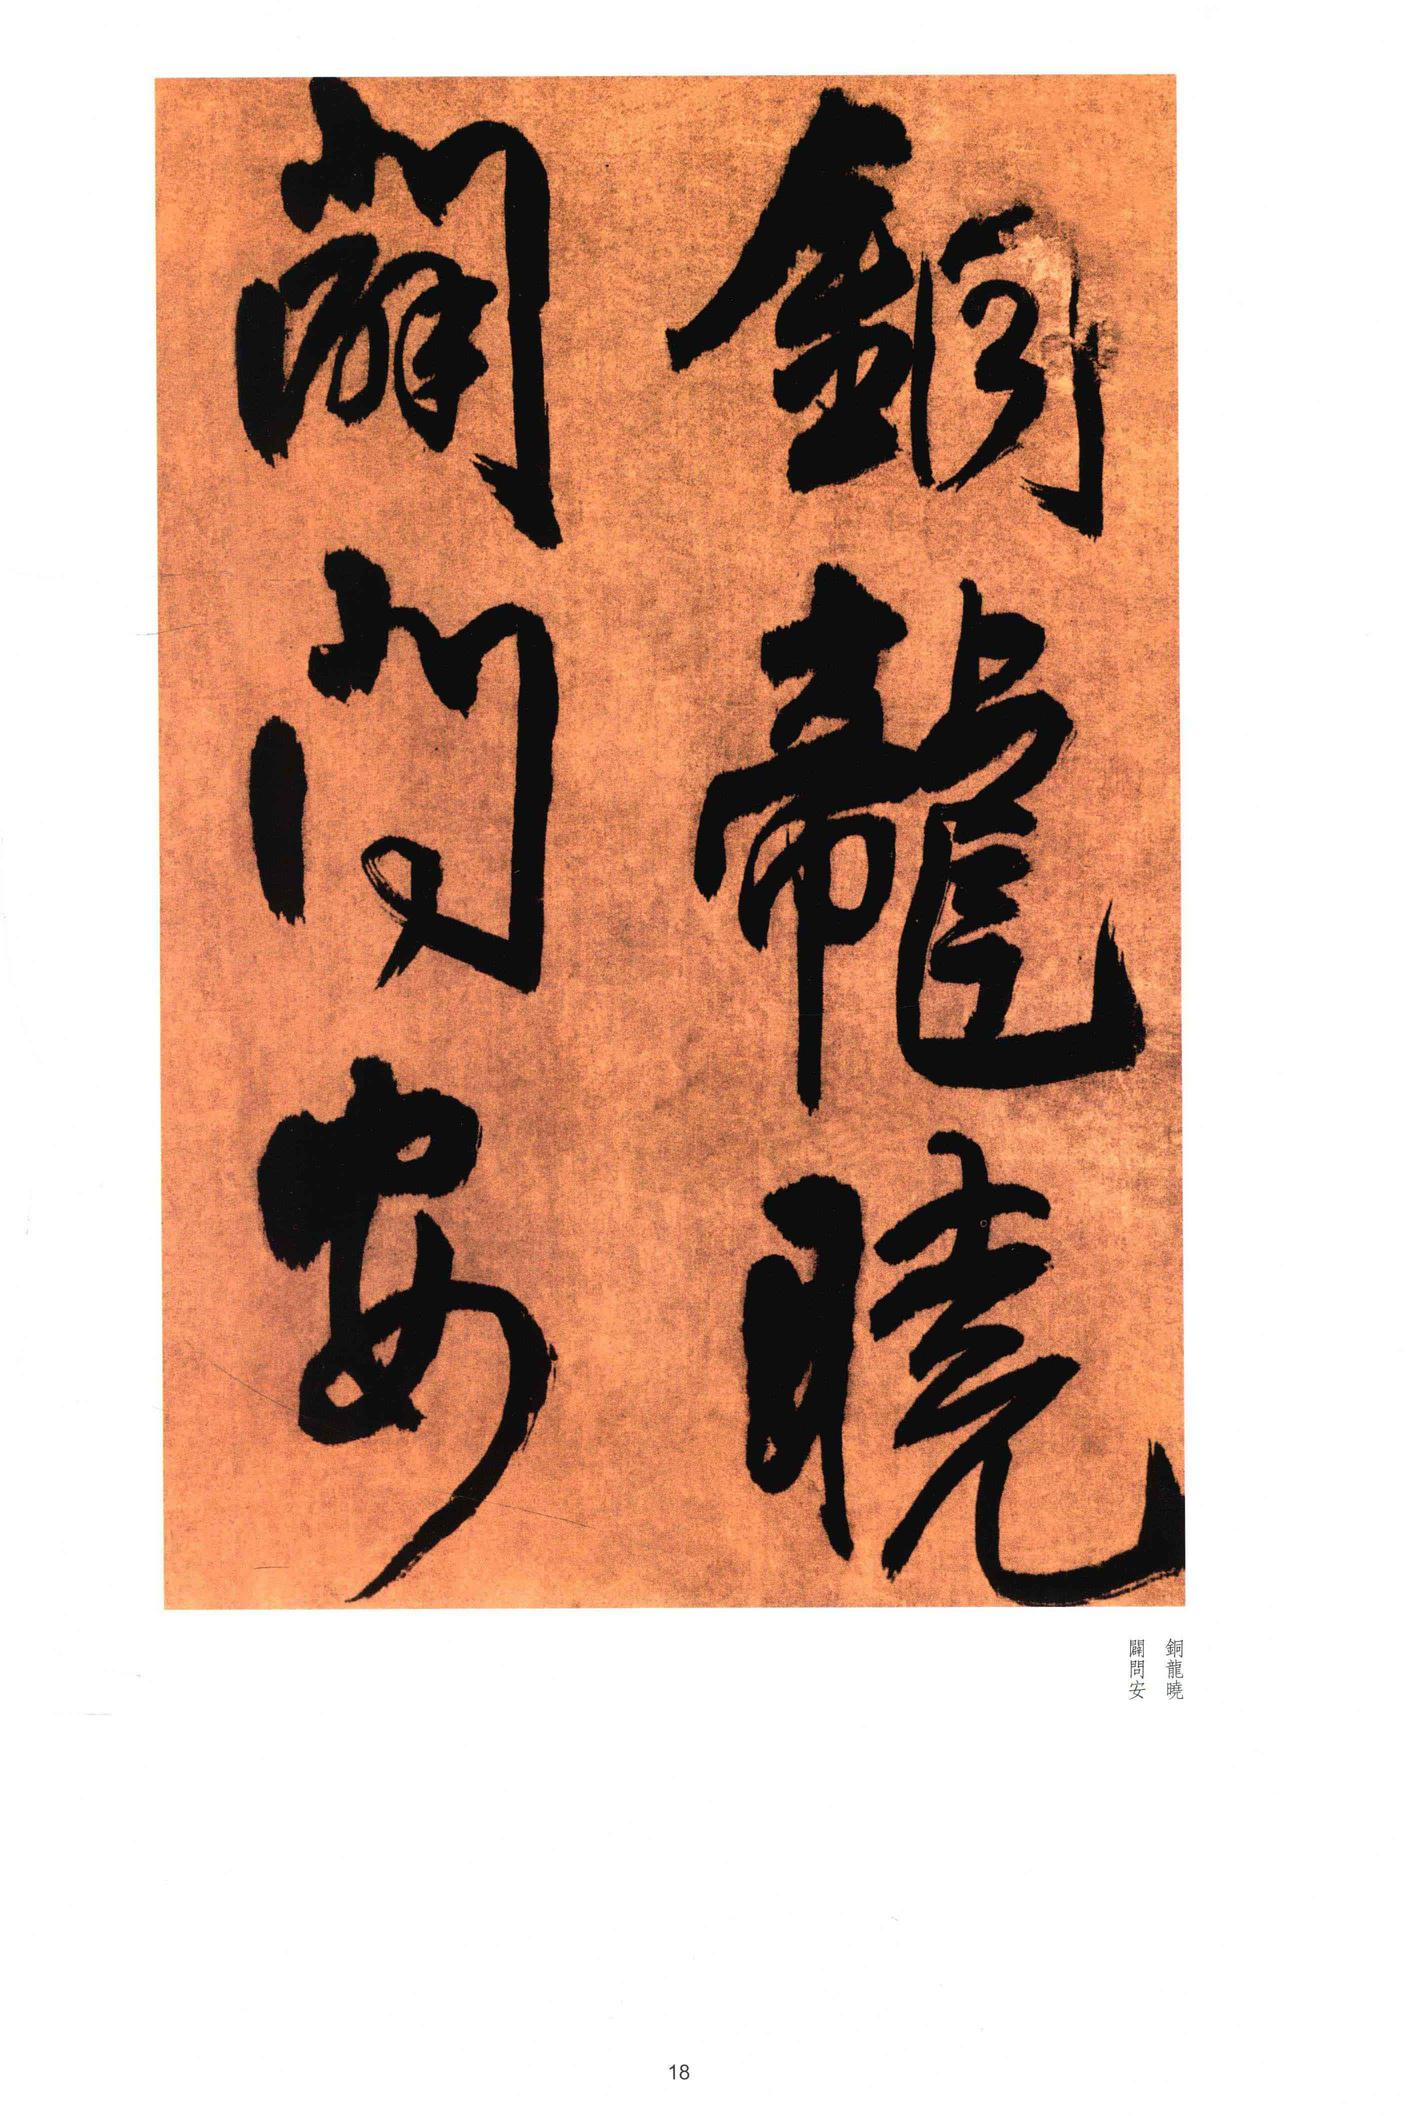 銅龍曉
闢問安
銅龍曉
闢問安
18